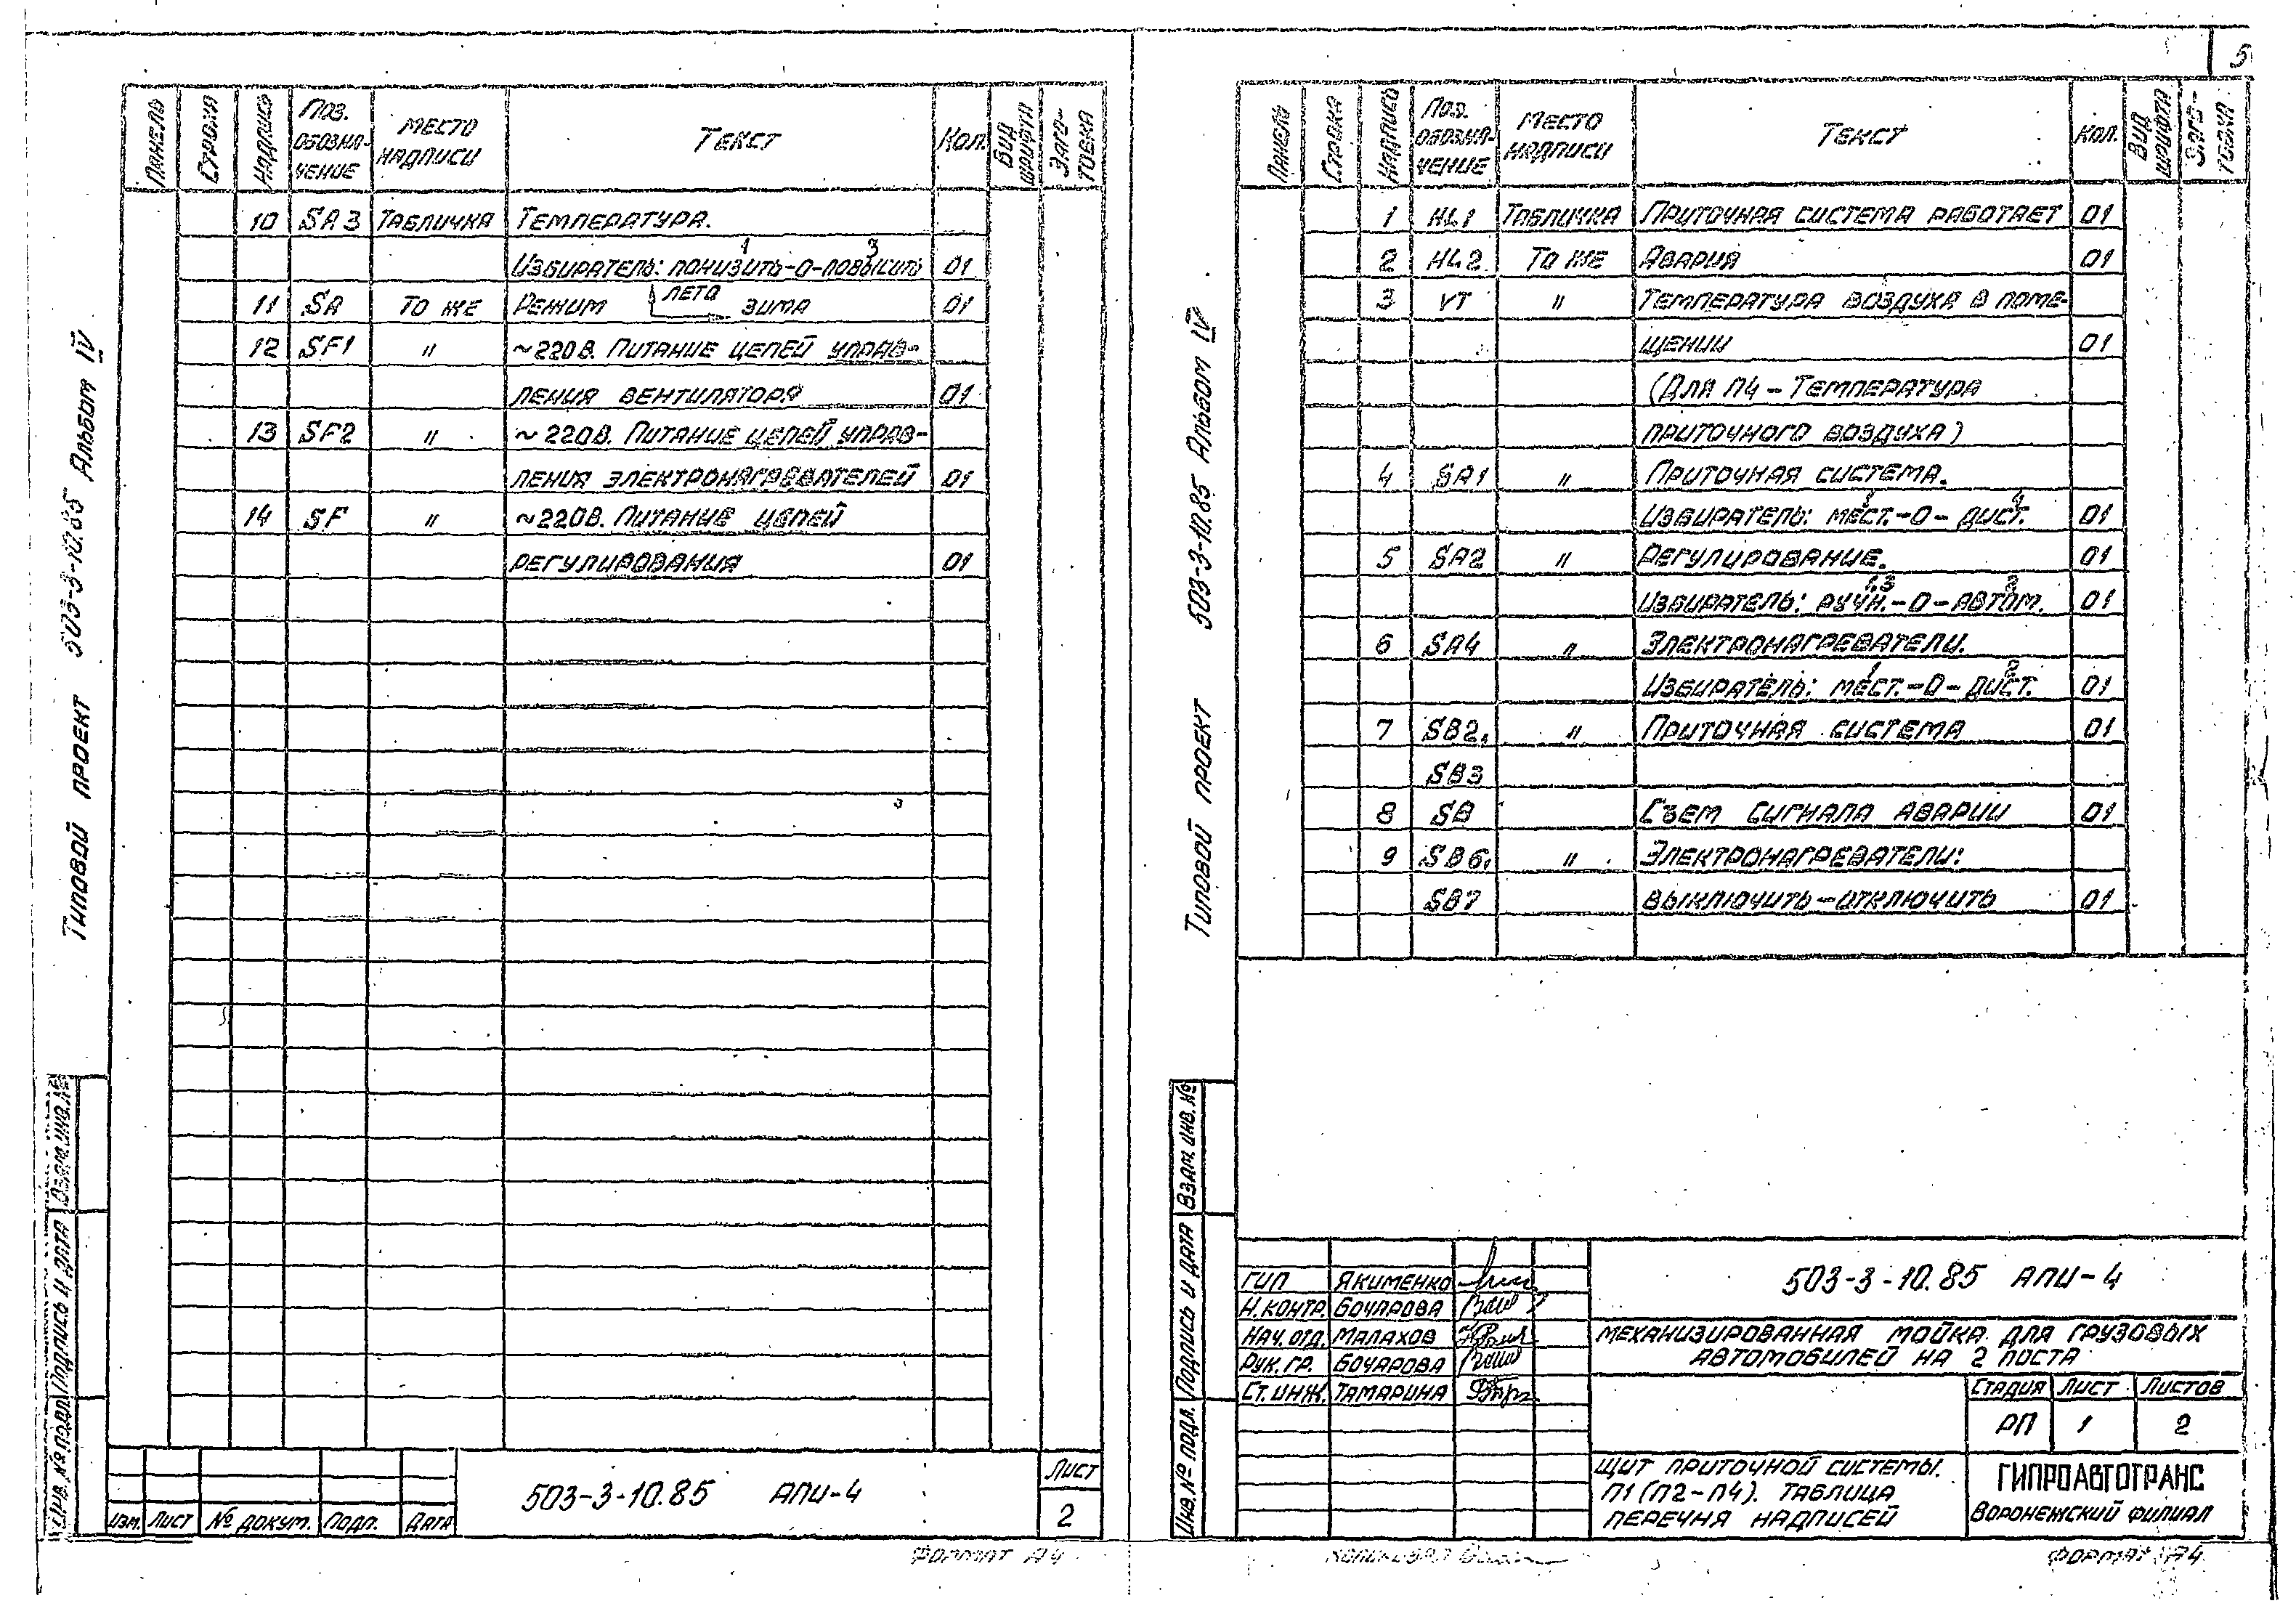 5
Панель Строка Надпись Поз. обозна-чение Место надписи Текст Кол. Вид шрифта Заго-товка
10 SA3 Табличка Температура.
1 3
Избиратель: понизить-О-повысить 01
11 SA То же Режим лето зима 01
12 SF1 " ~220В. Питание цепей управ-
ления вентилятора 01
13 SF2 " ~220В. Питание цепей управ-
ления электронагревателей 01
14 SF " ~220В. Питание цепей
регулирования 01
Типовой проект 503-3-10.85 Альбом IV
Взам. инв. №
Подпись и дата
Инв. № подл.
Изм. Лист № докум. Подп. Дата
503-3-10.85 АПИ-4
Лист
2
Формат А4
Панель Строка Надпись Поз. обозна-чение Место надписи Текст Кол. Вид шрифта Заго-товка
1 HL1 Табличка Приточная система работает 01
2 HL2 То же Авария 01
3 УТ " Температура воздуха в поме-
щении 01
(Для П4 - Температура
приточного воздуха)
4 SA1 " Приточная система.
Избиратель: мест.-О-дист. 01
5 SA2 " Регулирование. 01
1,3 2
Избиратель: ручн.-О-автом. 01
6 SA4 " Электронагреватели.
1 2
Избиратель: мест.-О-дист. 01
7 SB2, " Приточная система 01
SB3
8 SB Съем сигнала аварии 01
9 SB6, " Электронагреватели:
SB7 выключить-отключить 01
Типовой проект 503-3-10.85 Альбом IV
Взам. инв. №
Подпись и дата
Инв. № подл.
ГИП Якименко
Н.контр. Бочарова
Нач. отд. Малахов
Рук. гр. Бочарова
Ст. инж. Тамарина
503-3-10.85 АПИ-4
Механизированная мойка для грузовых
автомобилей на 2 поста
Стадия Лист Листов
РП 1 2
Щит приточной системы.
П1 (П2-П4). Таблица
перечня надписей
ГИПРОАВТОТРАНС
Воронежский филиал
Копировал
Формат А4